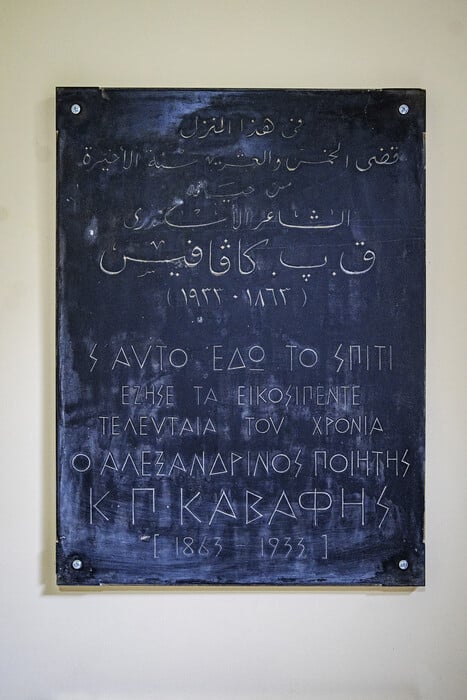 في هذا المنزل
قضى الخمس والعشرين سنة الأخيرة
من حياته
الشاعر الأسكندرى
ق. پ. كاڤافيس
(١٨٦٣ - ١٩٣٣)
Σ ΑΥΤΟ ΕΔΩ ΤΟ ΣΠΙΤΙ
ΕΖΗΣΕ ΤΑ ΕΙΚΟΣΙΠΕΝΤΕ
ΤΕΛΕΥΤΑΙΑ ΤΟΥ ΧΡΟΝΙΑ
Ο ΑΛΕΞΑΝΔΡΙΝΟΣ ΠΟΙΗΤΗΣ
Κ·Π·ΚΑΒΑΦΗΣ
[ 1863 - 1933 ]